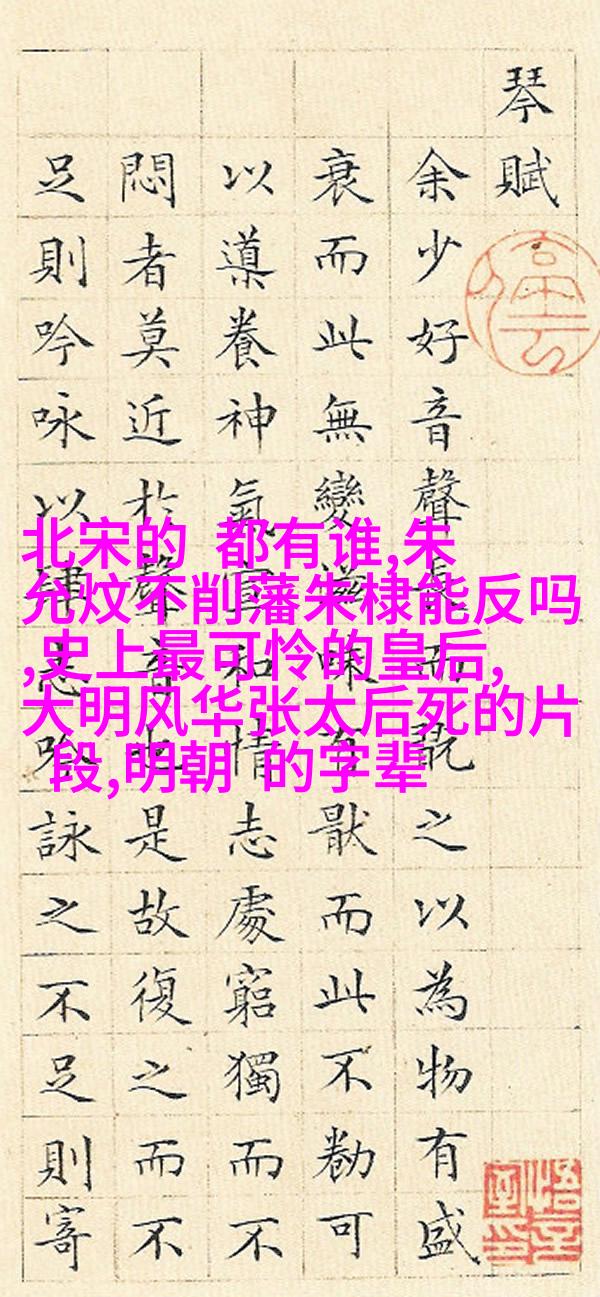 琴賦
余少好音聲長而翫之以為物有盛
衰而此無變滋味有猒而此不勌可
以導養神氣宣和情志處窮獨而不
悶者莫近於聲音也是故復之而不
足則吟咏以肆志吟詠之不足則寄
北宋的 都有谁,朱
允炆不削藩朱棣能反吗
,史上最可怜的皇后,
大明风华张太后死的片
段,明朝 的字辈